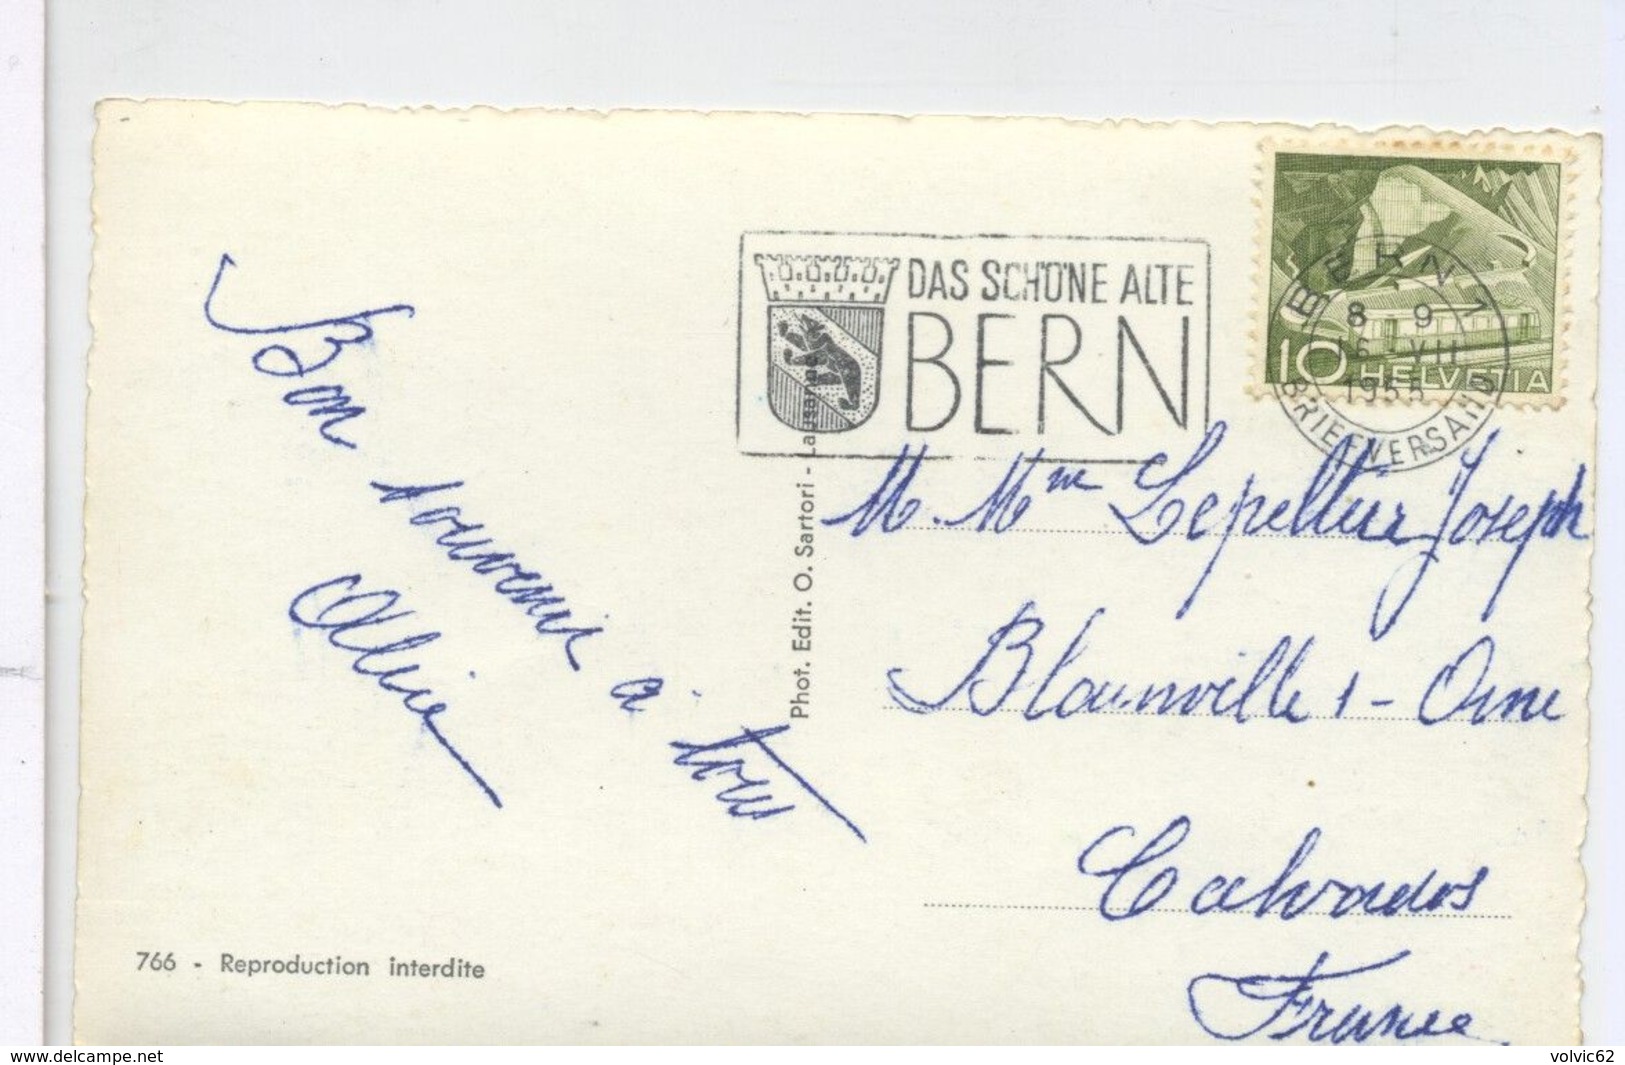 DAS SCHÖNE ALTE
BERN
BERN 1
8 - 9
16. VII
1955
BRIEFVERSAND
10 HELVETIA
Bon
souvenir
à
tous
Alice
Phot. Edit. O. Sartori - Lausanne
M. Mme Lepeltier Joseph
Blainville s - Orne
Calvados
France
766 - Reproduction interdite
www.delcampe.net
volvic62